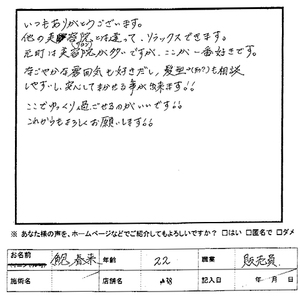 いつもありがとうございます。
他の美容院とは違って、リラックスできます。
元町は美容院(サロン)が多いですが、ここが一番好きです。
なごやかな雰囲気も好きだし、髪型の(向?)も相談
しやすいし、安心してまかせる事が出来ます!!
ここでゆっくり過ごせるのがいいです!!
これからもよろしくお願いします!!
※ あなた様の声を、ホームページなどでご紹介してもよろしいですか? □はい □匿名で □ダメ
お名前 年齢 22 職業 販売員
施術名 店舗名 記入日 年 月 日